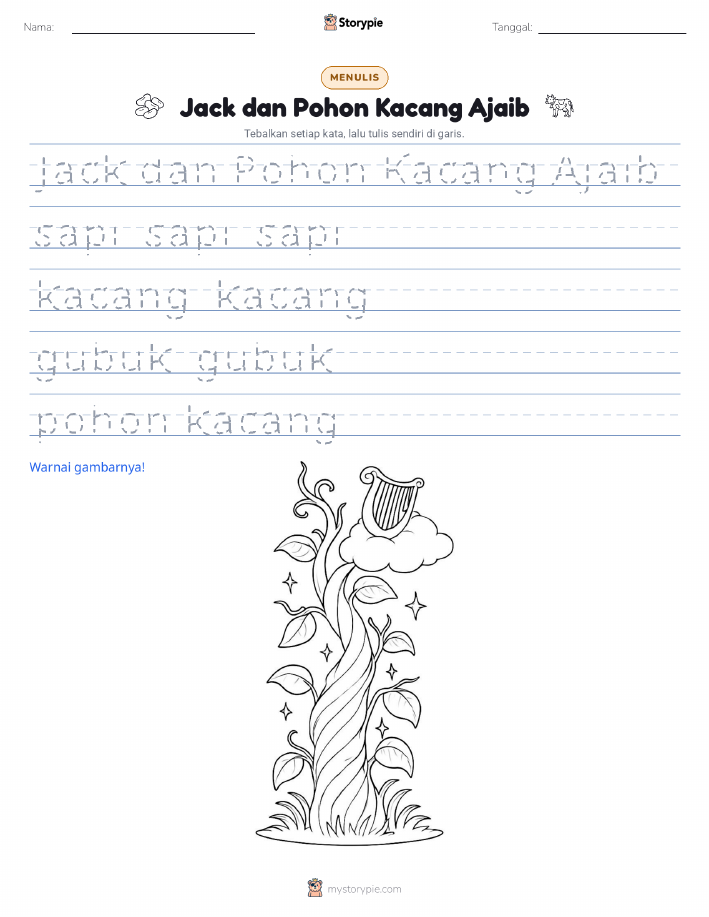 Nama:
Storypie
Tanggal:
MENULIS
Jack dan Pohon Kacang Ajaib
Tebalkan setiap kata, lalu tulis sendiri di garis.
Jack dan Pohon Kacang Ajaib
sapi sapi sapi
kacang kacang
gubuk gubuk
pohon kacang
Warnai gambarnya!
mystorypie.com